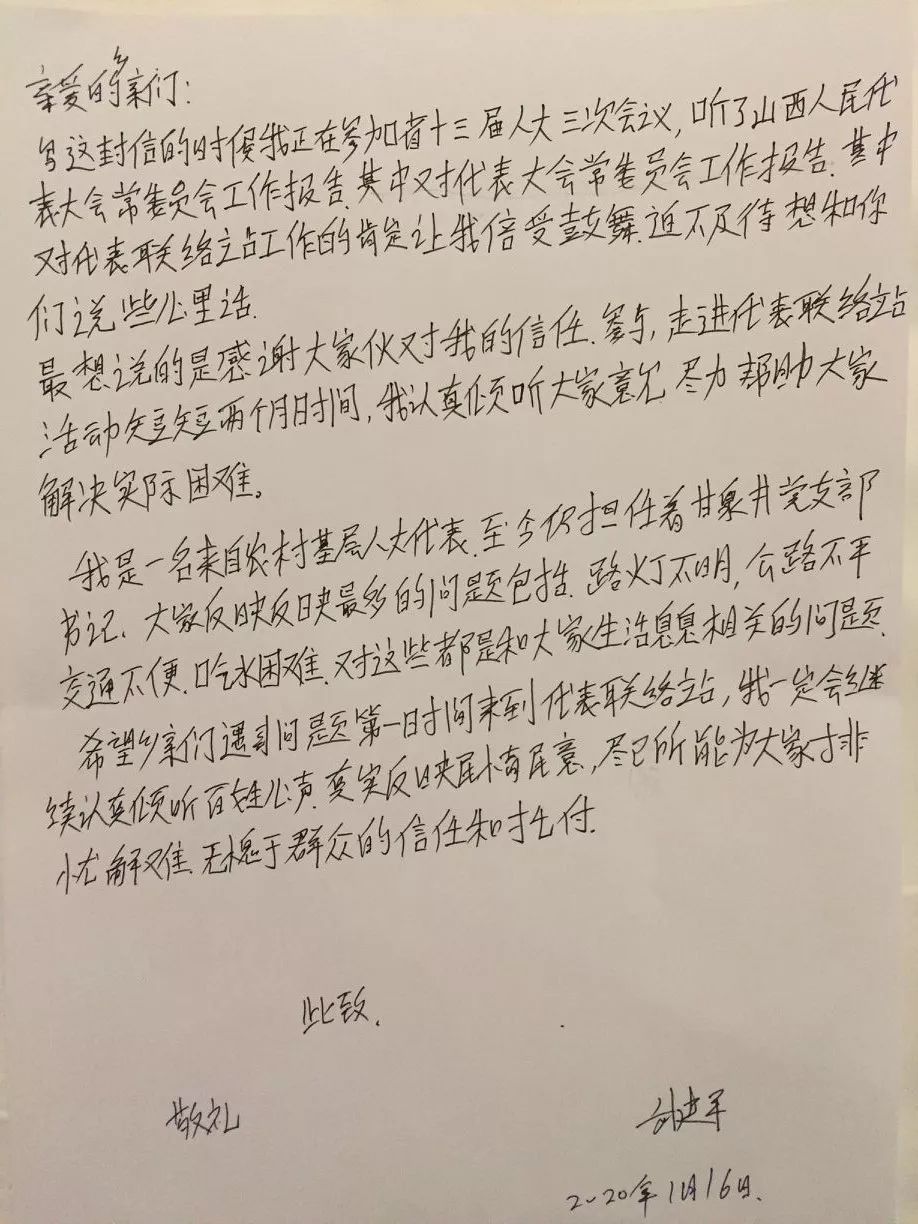 亲爱的乡亲们:
写这封信的时候我正在参加省十三届人大三次会议,听了山西人民代
表大会常委员会工作报告.其中对代表大会常委员会工作报告.其中
对代表联络站工作的肯定让我倍受鼓舞.迫不及待想和你
们说些心里话.
最想说的是感谢大家伙对我的信任.参与,走进代表联络站
活动短短两个月时间,我认真倾听大家意见 尽力帮助大家
解决实际困难。
我是一名来自农村基层人大代表.至今仍担任着甘泉井党支部
书记、大家反映反映最多的问题包括.路灯不明,公路不平
交通不便.吃水困难.对这些都是和大家生活息息相关的问题.
希望乡亲们遇到问题第一时间来到代表联络站,我一定会继
续认真倾听百姓心声.真实反映民情民意,尽己所能为大家排
忧解难.无愧于群众的信任和托付.
此致.
敬礼
建军
2020年1月16日.